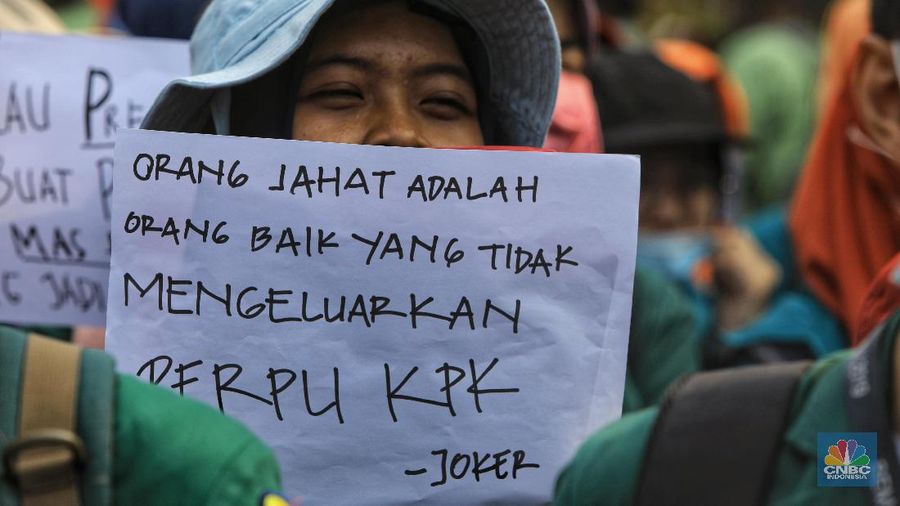 ORANG JAHAT ADALAH
ORANG BAIK YANG TIDAK
MENGELUARKAN
PERPU KPK
-JOKER
LAU
BUAT
MAS
JADI
CNBC
INDONESIA